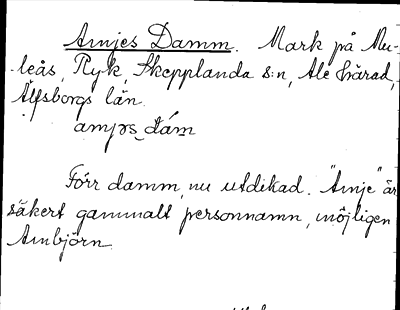 Amjes Damm. Mark på Mu-
leås, Ryk, Skepplanda s:n, Ale härad,
Älfsborgs län.
amjəs dám
Förr damm, nu utdikad. "Amje" är
säkert gammalt personnamn, möjligen
Ambjörn.